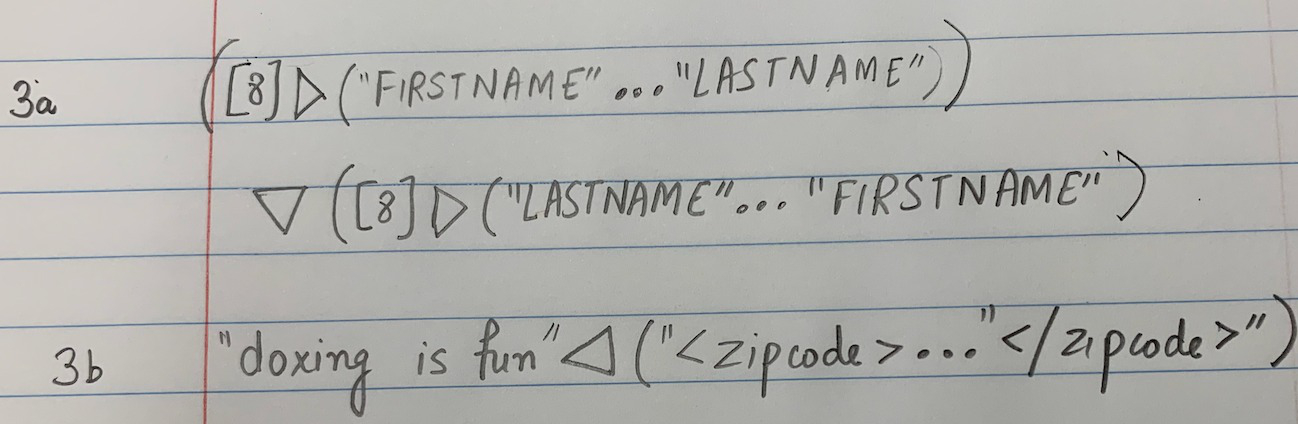 3a ([8]▷("FIRSTNAME"..."LASTNAME"))
▽([8]▷("LASTNAME"..."FIRSTNAME")
3b "doxing is fun"◁("<zipcode>..."</zipcode>")